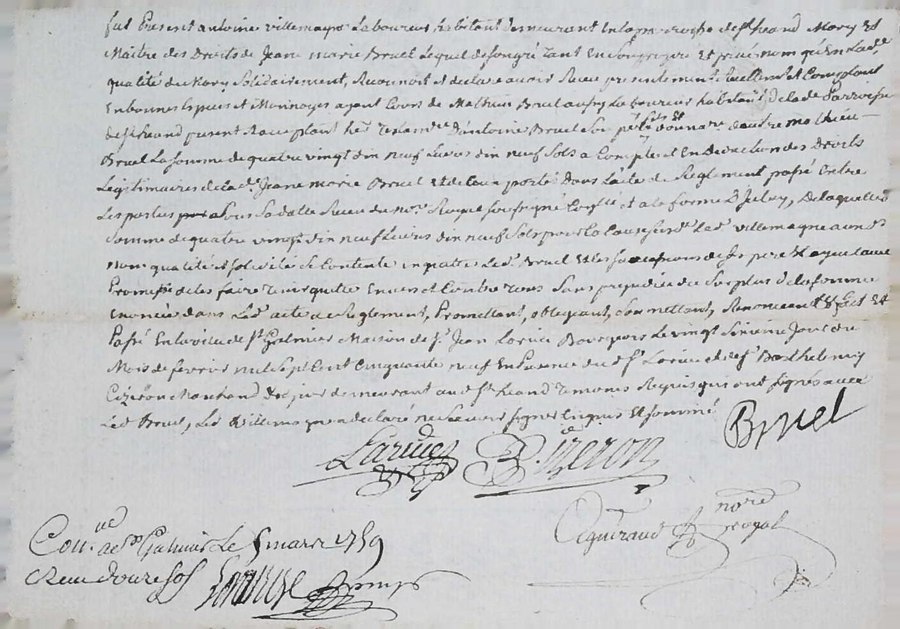 fut Present antoine villemagne Laboureur habitant demeurant en la parroisse de st heand Mary Et
Maitre des Droits de Jeane marie Bruel Lequel de son gré tant en son propre et privé nom qu'En lad.e
qualité de Mary Solidairement, Reconnoit et declare avoir Receu presentement Reellement et Comptant
En bonnes Especes et Monnoyes ayant Cours de Mathieu Bruel aussy Laboureur habitant de lad.e Parroisse
de st heand present et acceptant her. Testamre D'antoine Bruel Son pere donnare dautre mathieu
Bruel La somme de quatre vingt dix neuf Livres dix neuf Sols a Compte et En Deduction des Droits
Legitimaires de la de. Jeane marie Bruel et de Ceux porté Dans l'acte de Reglement passé Entre
Les parties Sous Sa datte Receu du nore. Royal soussigné et a la forme D'Iceluy, De laquelle
Somme de quatre vingt dix neuf Livres dix neuf Sols led. villemagne aux d.
nom qualité et solidité Se Contente en quitte Led. Bruel Et les successions de ses pere et ayeul avec
Promesse de les faire Tenir quitte Envers et Contre Tous Sans prejudice du Surplus de la somme
Enoncée dans Led. acte de Reglement, Promettant, obligeant, soumettant, Renonceant &c fait Et
Passé En la ville de st Galmier Maison de sr. Jean Bourgeois Le vingt Sixieme Jour du
Mois de fevrier mil Sept Cent Cinquante neuf En presence dud. sr. et de sr. Barthelemy
Cizeron Marchand demeurant aud. st heand Temoins Requis qui ont signés avec
Led. Bruel, Led. villemagne a declaré ne Scavoir signer Enquis Et sommé
B. Cizeron Bruel
nore royal
Con.lé a St Galmier Le 5 mars 1759
Receu douze sols